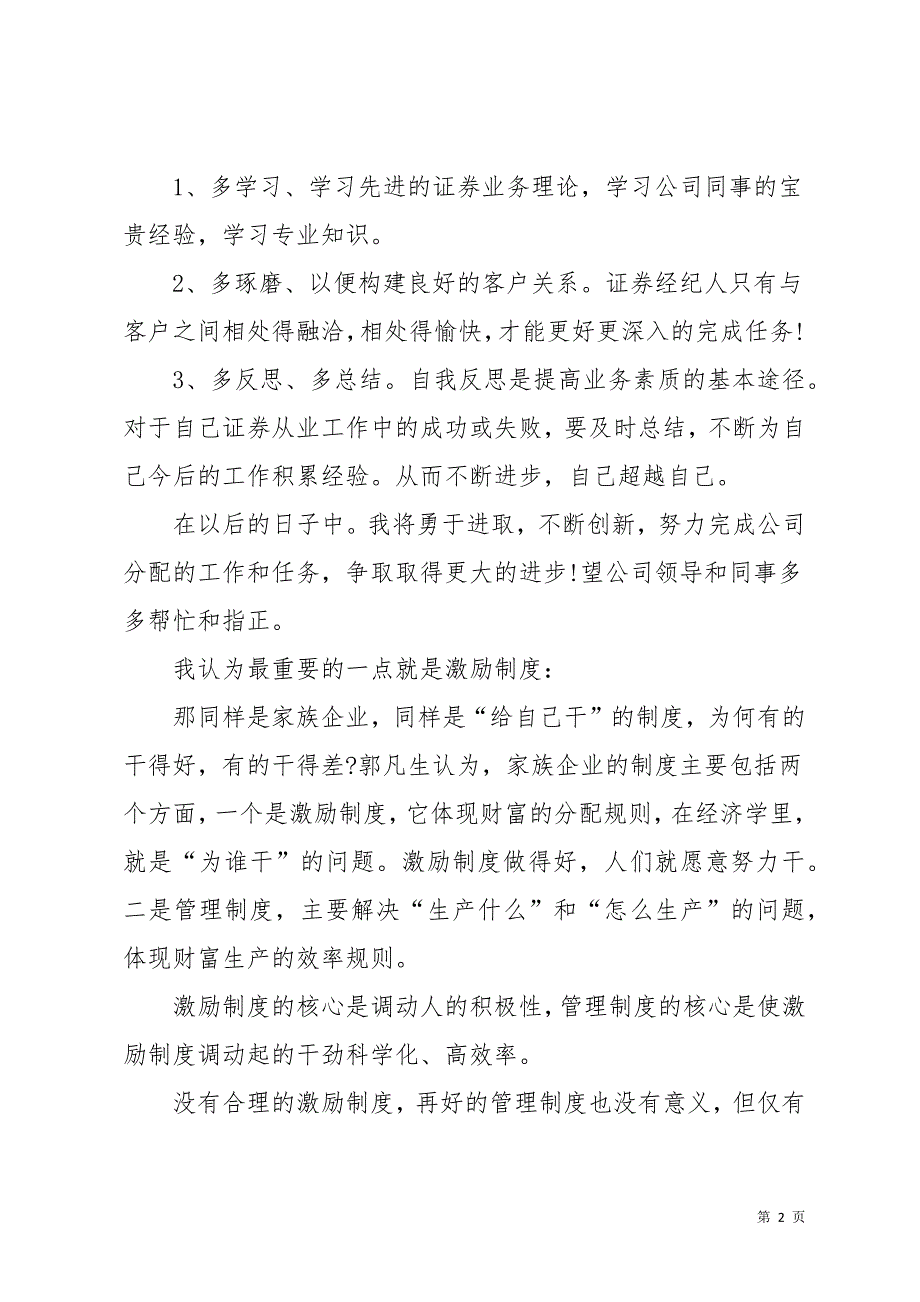 1、多学习、学习先进的证券业务理论，学习公司同事的宝
贵经验，学习专业知识。
2、多琢磨、以便构建良好的客户关系。证券经纪人只有与
客户之间相处得融洽,相处得愉快,才能更好更深入的完成任务!
3、多反思、多总结。自我反思是提高业务素质的基本途径。
对于自己证券从业工作中的成功或失败，要及时总结，不断为自
己今后的工作积累经验。从而不断进步，自己超越自己。
在以后的日子中。我将勇于进取，不断创新，努力完成公司
分配的工作和任务，争取取得更大的进步!望公司领导和同事多
多帮忙和指正。
我认为最重要的一点就是激励制度：
那同样是家族企业，同样是“给自己干”的制度，为何有的
干得好，有的干得差?郭凡生认为，家族企业的制度主要包括两
个方面，一个是激励制度，它体现财富的分配规则，在经济学里，
就是“为谁干”的问题。激励制度做得好，人们就愿意努力干。
二是管理制度，主要解决“生产什么”和“怎么生产”的问题，
体现财富生产的效率规则。
激励制度的核心是调动人的积极性，管理制度的核心是使激
励制度调动起的干劲科学化、高效率。
没有合理的激励制度，再好的管理制度也没有意义，但仅有
第 2 页